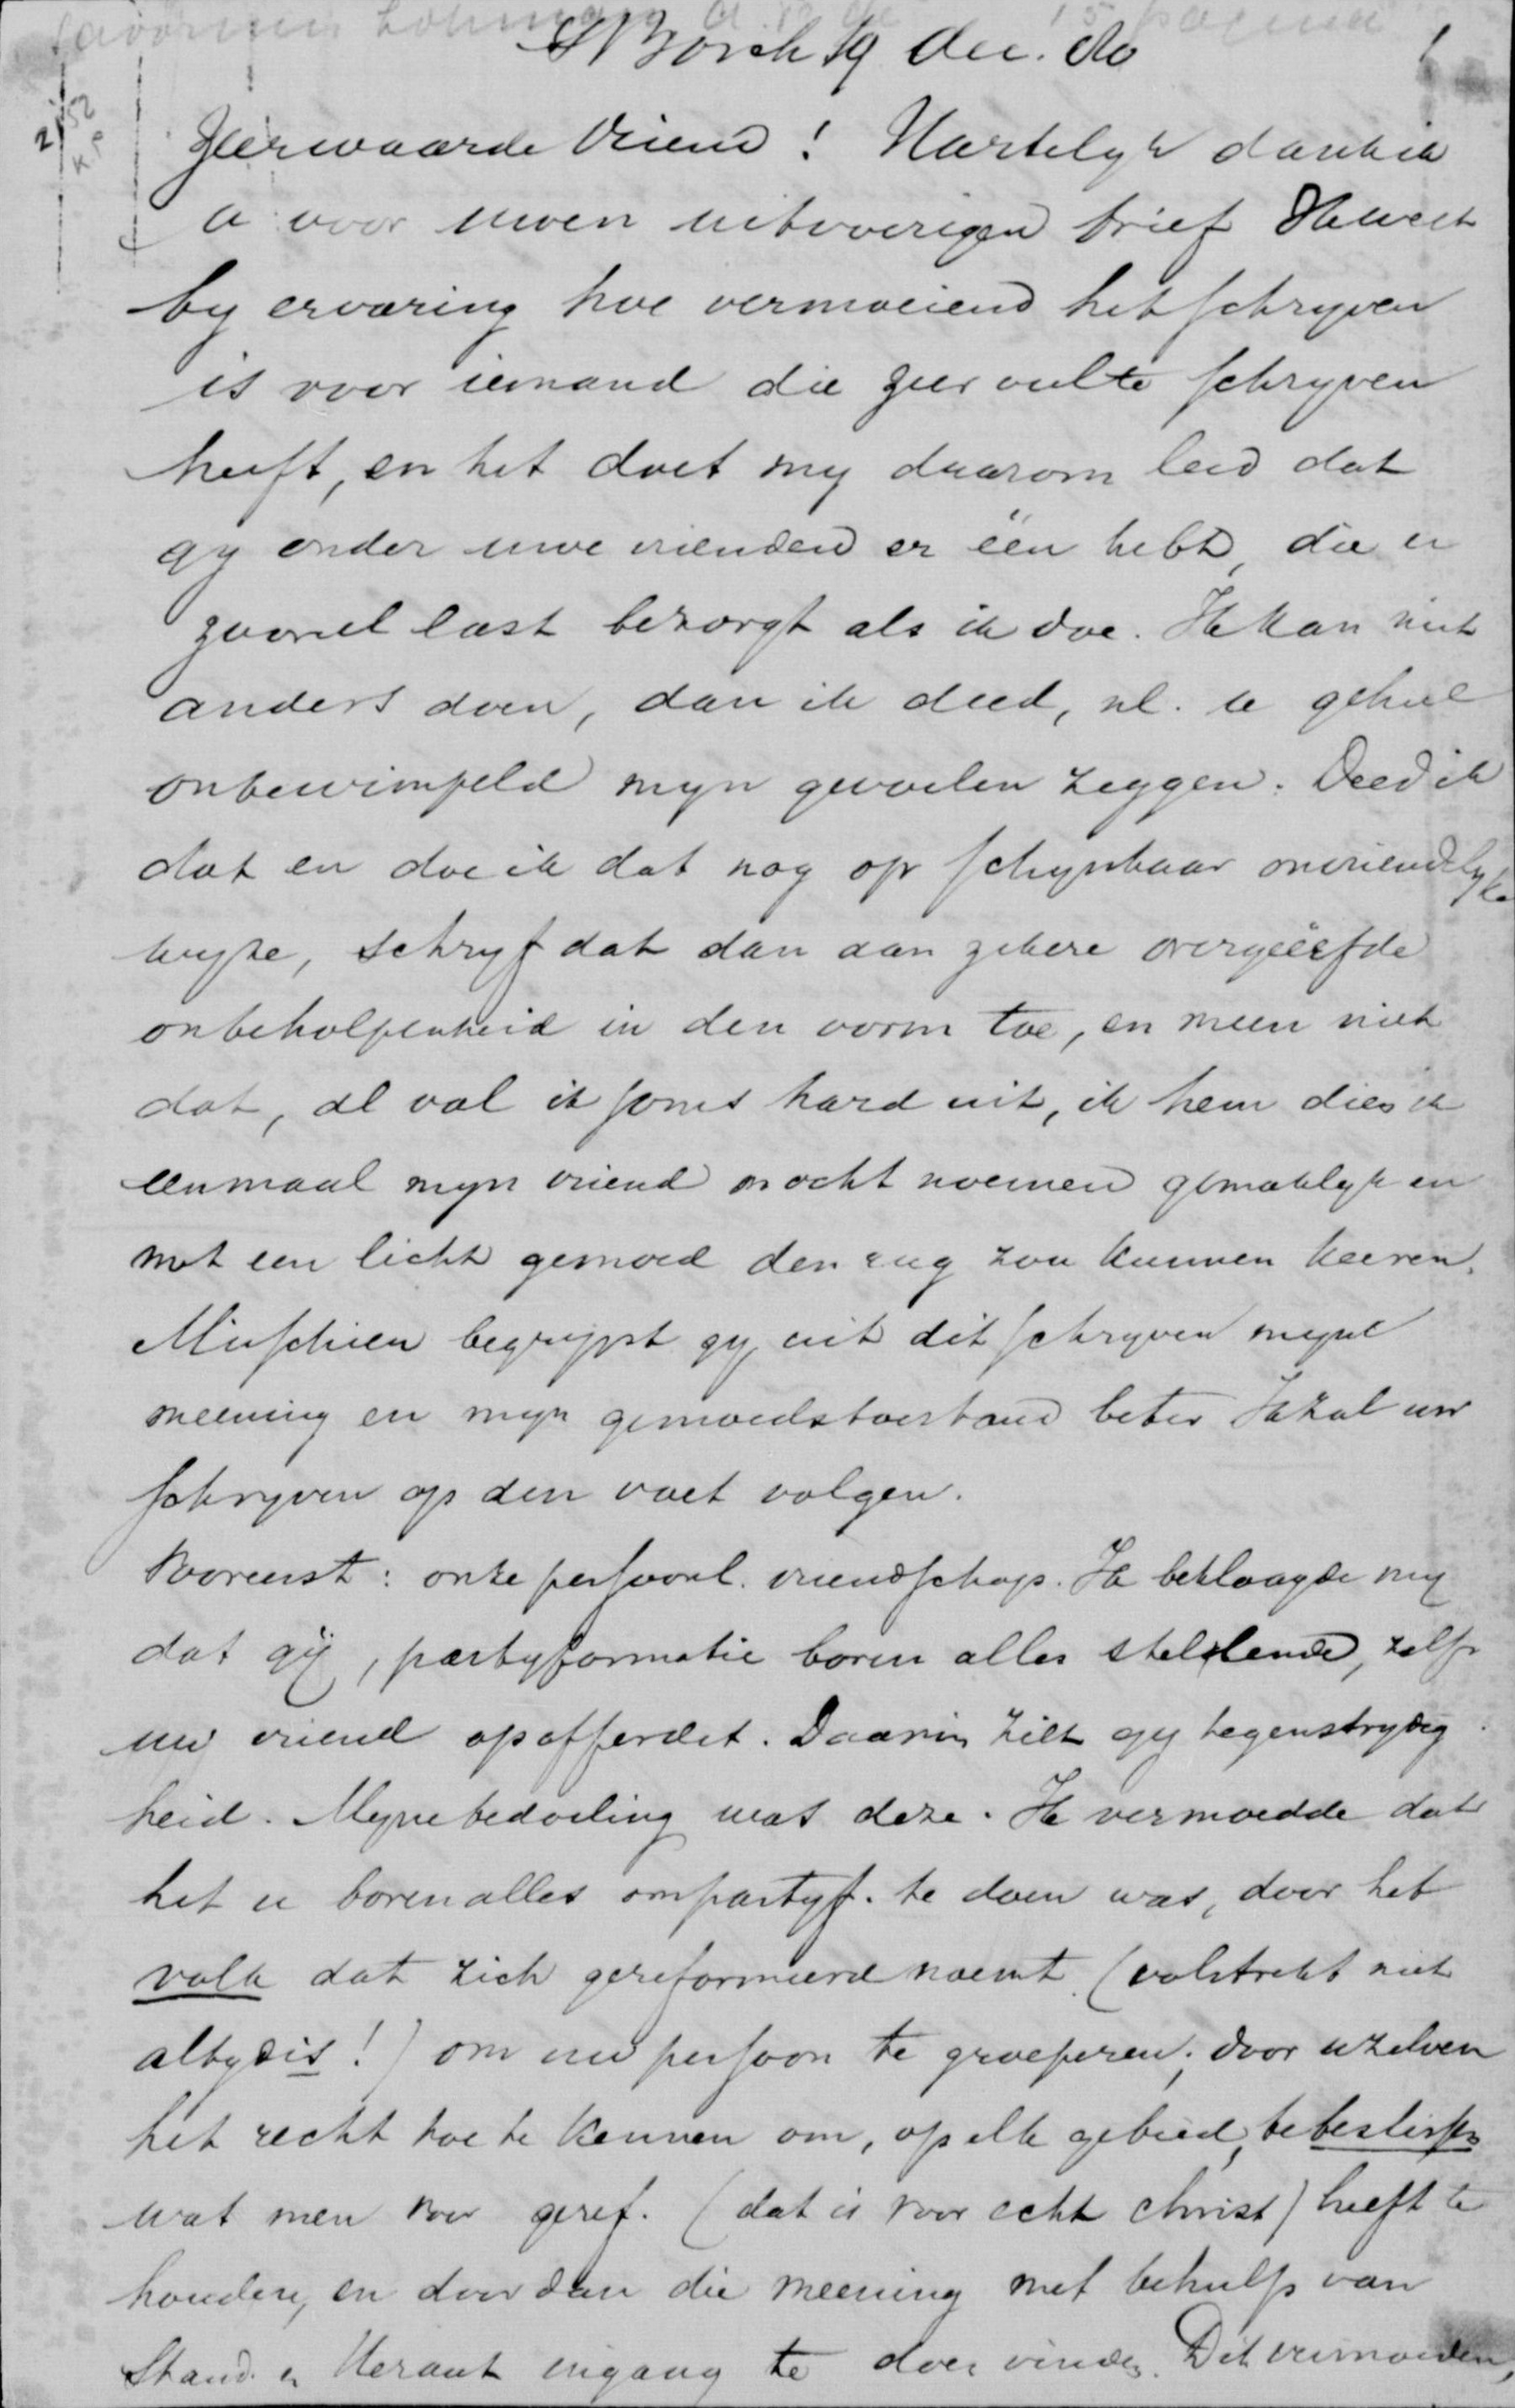 Savornin Lohman
15
1
'sBosch 19 dec. 80
2/52
Zeerwaarde Vriend! Hartelyk dank ik
u voor uwen uitvoerigen brief Ik weet
by ervaring hoe vermoeiend het schryven
is voor iemand die zeer veel te schryven
heeft, en het doet my daarom leed dat
gy onder uwe vrienden er één hebt, die u
zooveel last bezorgt als ik doe. Ik kan niet
anders doen, dan ik deed, nl. u geheel
onbewimpeld myn gevoelen zeggen. Deed ik
dat en doe ik dat nog op schynbaar onvriendelyke
wyze, schryf dat dan aan zekere overgeërfde
onbeholpenheid in den vorm toe, en meen niet
dat, al val ik soms hard uit, ik hem dien ik
eenmaal myn vriend mocht noemen gemakkelyk en
met een licht gemoed den rug zou kunnen keeren.
Misschien begrypt gy uit dit schryven myne
meening en myn gemoedstoestand beter Ik zal uw
schryven op den voet volgen.
Vooreerst: onze persoonl. vriendschap. Ik beklaagde my
dat gy, partyformatie boven alles stellende, zelfs
uw vriend opofferdet. Daarin ziet gy tegenstrydig
heid. Myne bedoeling was deze. Ik vermoedde dat
het u boven alles om partyf. te doen was, door het
volk dat zich gereformeerd noemt (volstrekt niet
altyd is!) om uw persoon te groeperen; door uzelven
het recht toe te kennen om, op elk gebied, te beslissen
wat men voor geref. (dat is voor echt christ) heeft te
houden, en door dan die meening met behulp van
Stand. en Heraut ingang te doen vinden. Dit vermoeden,